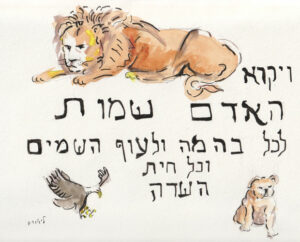 ויקרא
האדם שמות
לכל בהמה ולעוף השמים
וכל חית
השדה